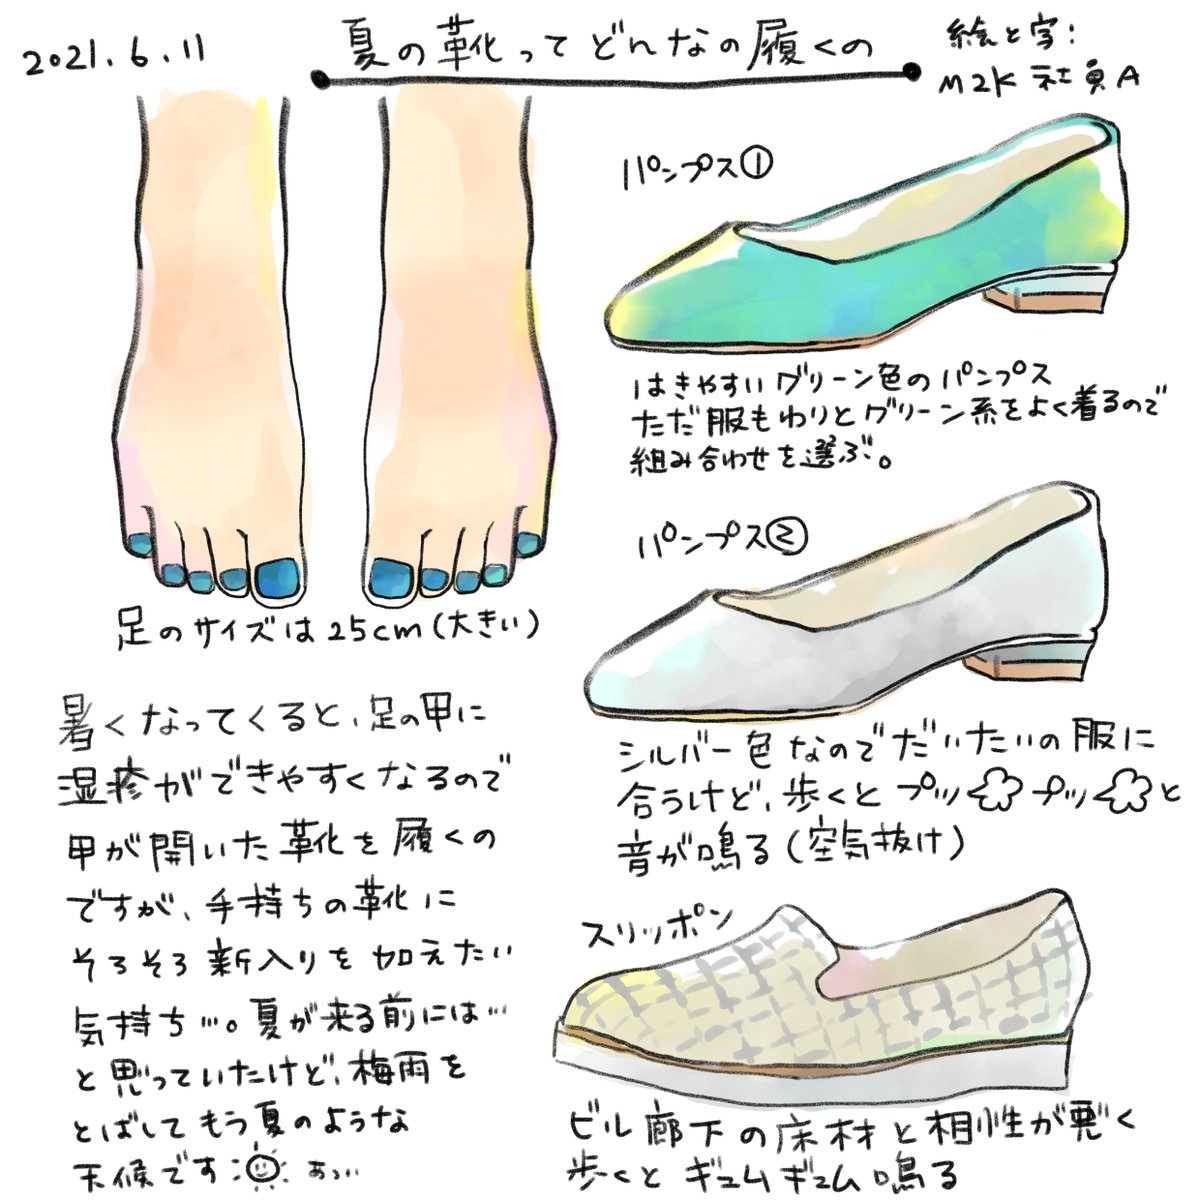 2021.6.11
夏の靴ってどんなの履くの
絵と字:
M2K 社員A
パンプス①
はきやすいグリーン色のパンプス
ただ服もわりとグリーン系をよく着るので
組み合わせを選ぶ。
パンプス②
シルバー色なのでだいたいの服に
合うけど、歩くとプップッと
音が鳴る(空気抜け)
スリッポン
ビル廊下の床材と相性が悪く
歩くとギュムギュム鳴る
足のサイズは25cm(大きい)
暑くなってくると、足の甲に
湿疹ができやすくなるので
甲が開いた靴を履くの
ですが、手持ちの靴に
そろそろ新入りを加えたい
気持ち…。夏が来る前には…
と思っていたけど、梅雨を
とばしてもう夏のような
天候です あつ…